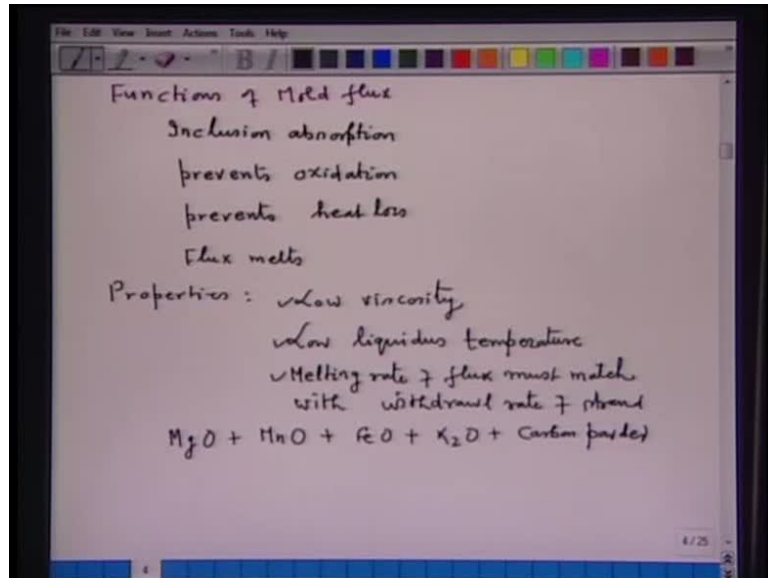 File Edit View Insert Actions Tools Help
Functions of Mold flux
Inclusion absorption
prevents oxidation
prevents heat loss
Flux melts
Properties : ✓Low viscosity
✓Low liquidus temperature
✓Melting rate of flux must match
with withdrawl rate of strand
MgO + MnO + FeO + K₂O + Carbon powder
4/25
4